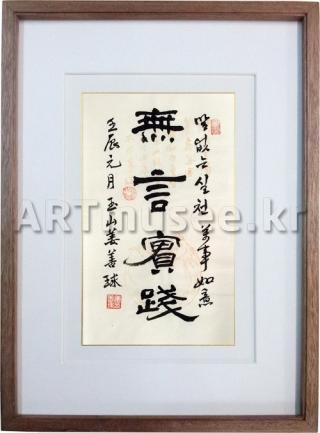 말없는 실천 萬事如意
無言實踐
壬辰元月 玉山 姜善球
ARTmusee.kr